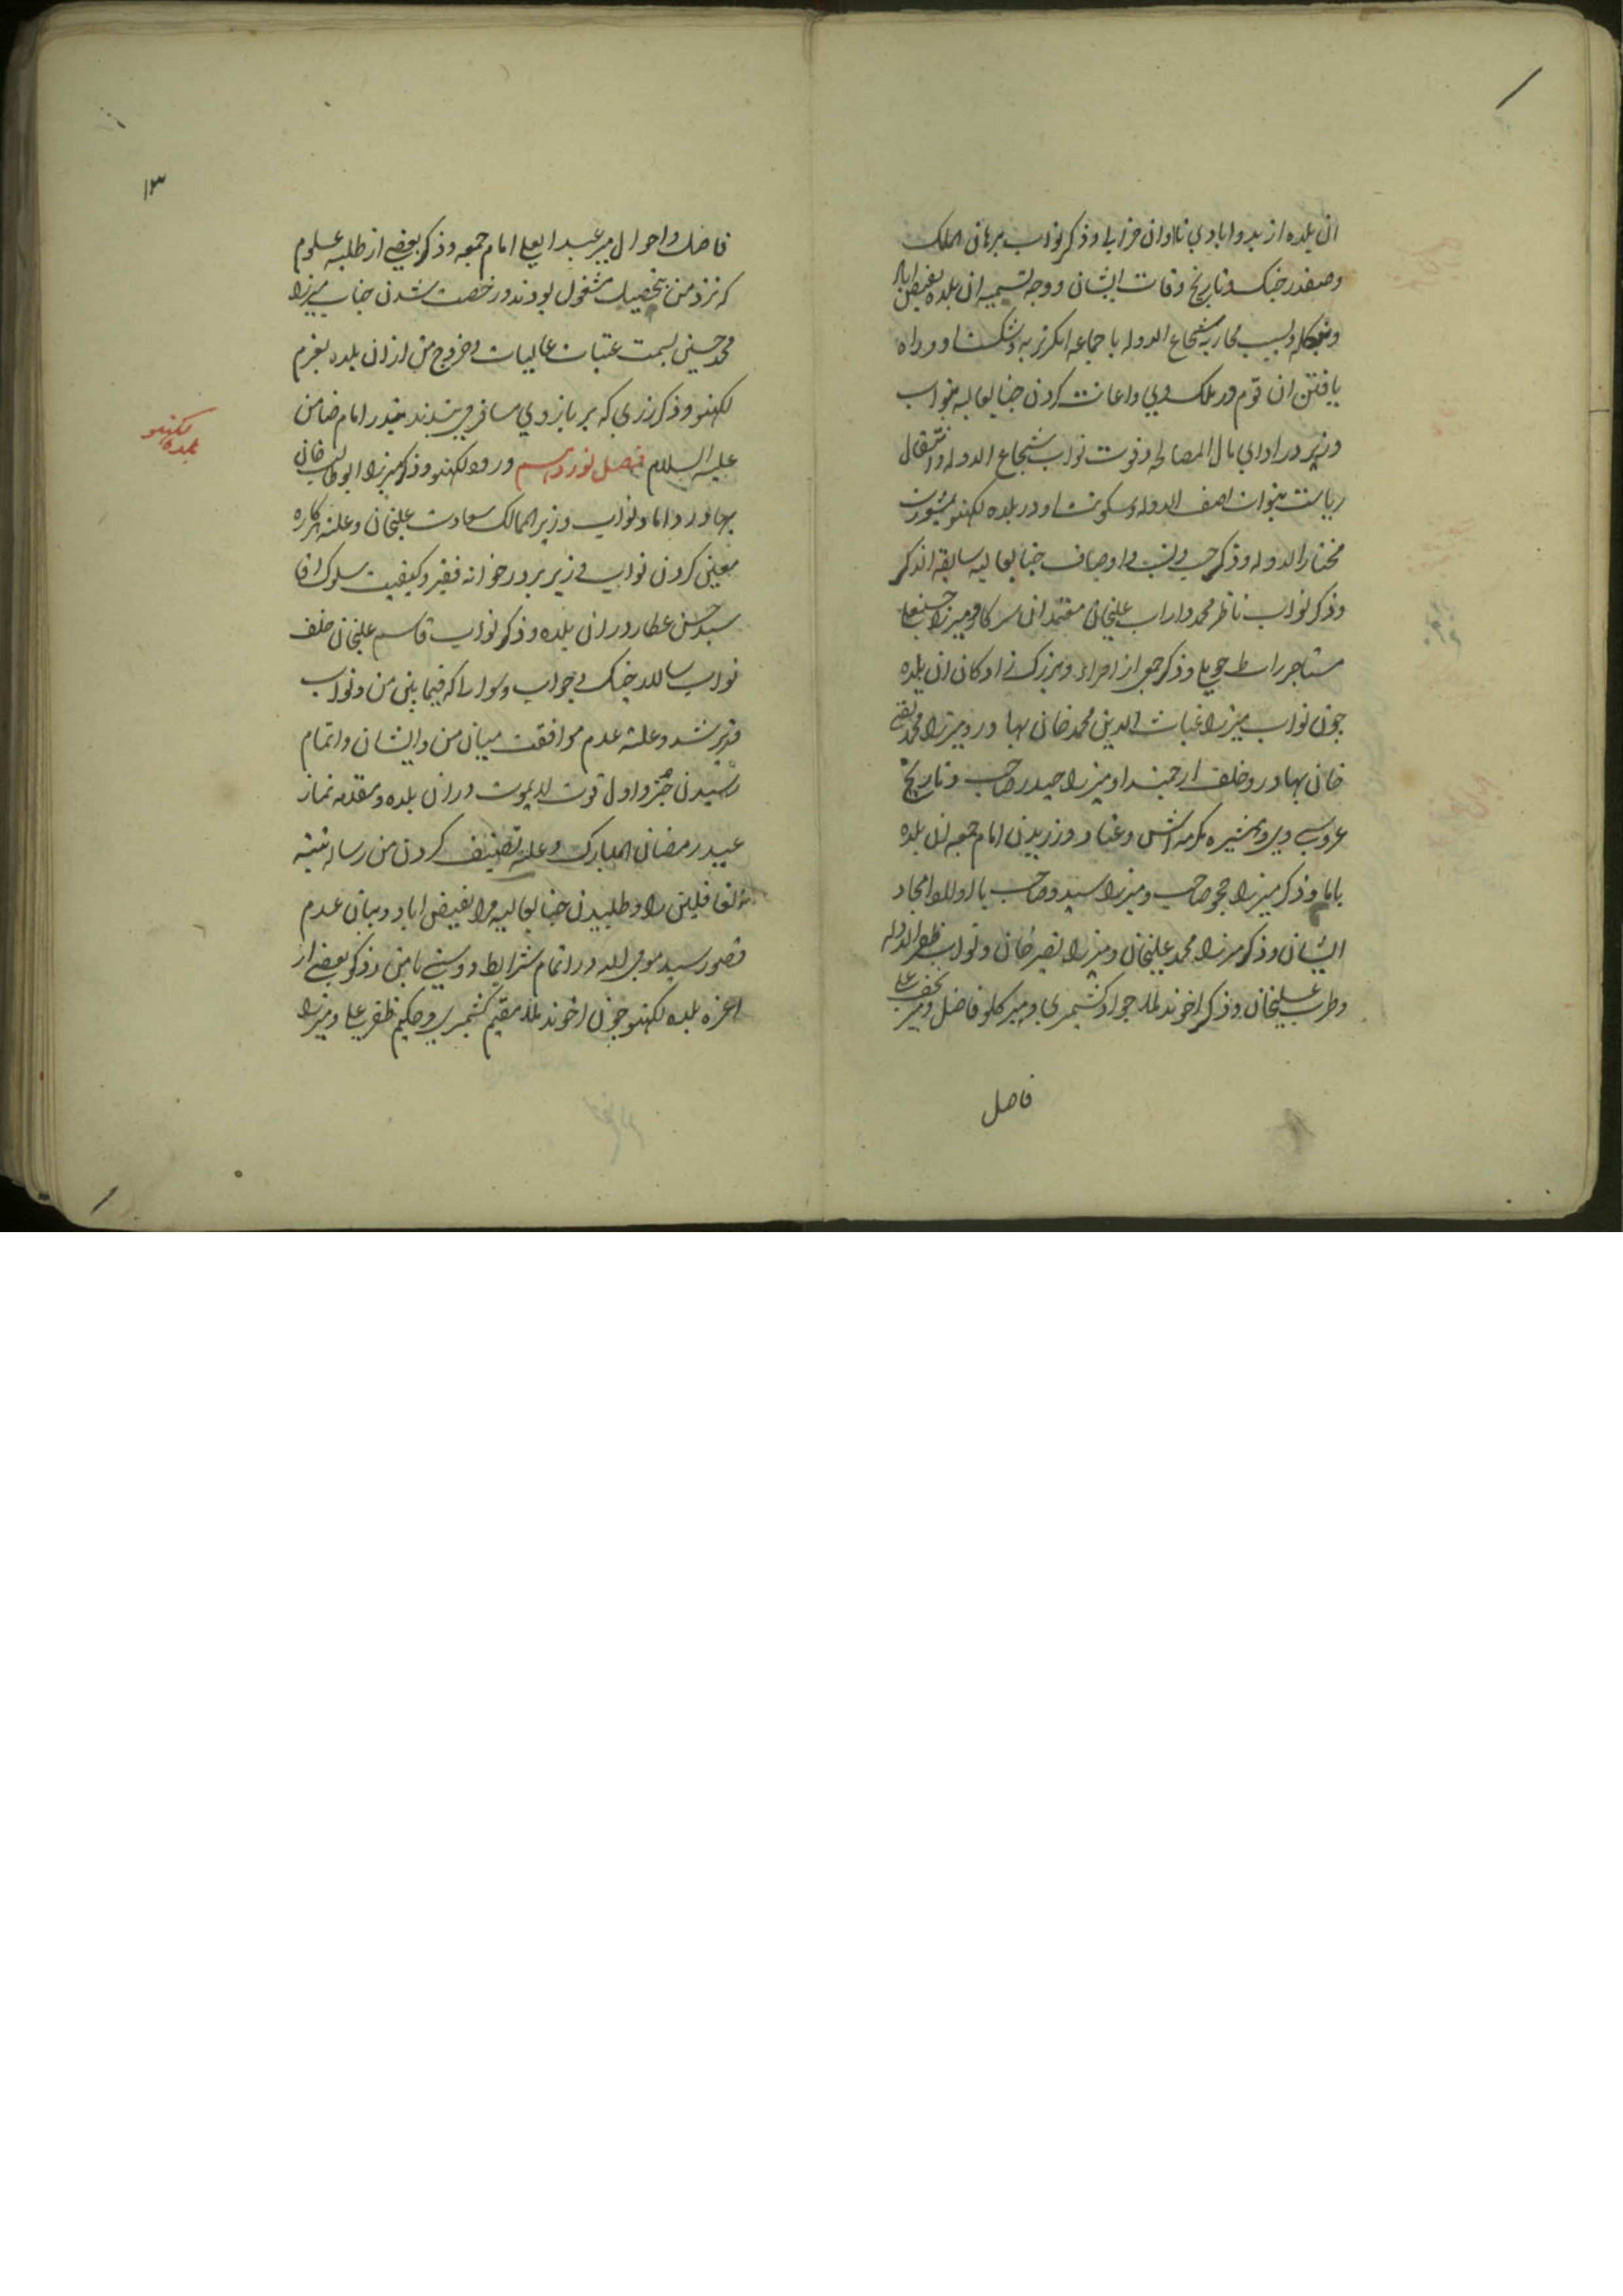 ان بلده از بدو ابادي تا اوان خرابي وذکر نواب برهان الملک
وصفدر جنک وتاریخ وفات ایشان ووجه تسمیه ان بلده بفیض اباد
وبنکله وسبب محاربه شجاع الدوله با جماعه انکریزیه وشکست او وراه
یافتن ان قوم در ملک وي واعانت کردن جنابعالیه بنواب
وزیر در اداي مال المصالحه وفوت نواب شجاع الدوله وانتقال
ریاست بنواب اصف الدوله وسکونت او در بلده لکهنو بمشورت
مختار الدوله وذکر حسب ونسب واوصاف جنابعالیه سابقه الذکر
وذکر نواب ناظر محمد داراب علیخان معتمد ان سرکار ومیرزا حسنعلي
مستاجر وذکر جمعي از امراء وبزرک زادکان ان بلده
چون نواب میرزا غیاث الدین محمد خان بهادر ومیرزا محمد تقي
خان بهادر وخلف ارجمند او میرزا حیدر صاحب وتاریخ
عروسي وي وهمشیره مکرمه اش وعناد ورزیدن امام جمعه ان بلده
باما وذکر میرزا جحو صاحب ومیرزا سیدو صاحب با اولاد امجاد
ایشان وذکر میرزا محمد علیخان ومیرزا نصیر خان ونواب ظفر الدوله
وطرب علیخان وذکر اخوند ملا جواد کشمیري ومیر کلو فاضل ومیر نجف علي
فاضل
۱۳
فاضل واحوال میر عبد العلي امام جمعه وذکر بعضي از طلبه علوم
که نزد من بتحصیل مشغول بودند ورخصت شدن جناب میرزا
محمد حسین بسمت عتبات عالیات وخروج من از ان بلده بعزم
لکهنو وذکر زري که بر بازوي مسافر مي بندند بنذر امام ضامن
علیه السلام فصل نوزدهم ورود لکهنو وذکر میرزا ابو طالب خان
بهادر داماد نواب وزیر الممالک سعادت علیخان وعلت هرکاره
معین کردن نواب وزیر بر در خوانه فقیر وکیفیت سلوک اقا
سید حسن عطار در ان بلده وذکر نواب قاسم علیخان خلف
نواب سالار جنک وجواب وسوال که فیما بین من ونواب
وزیر شد وعلت عدم موافقت میان من وایشان واتمام
رسیدن جزو اول قوت لا یموت در ان بلده ومقدمه نماز
عید رمضان المبارک وعلت تصنیف کردن من رساله تنبیه
الغافلین را وطلبیدن جنابعالیه مرا بفیض اباد وبیان عدم
قصور سید مومي الیه در اتمام شرایط دوستي با من وذکر بعضي از
اعزه بلده لکهنو چون اخوند ملا مقیم کشمیري وحکیم ظفر علي ومیرزا
بلده لکهنو